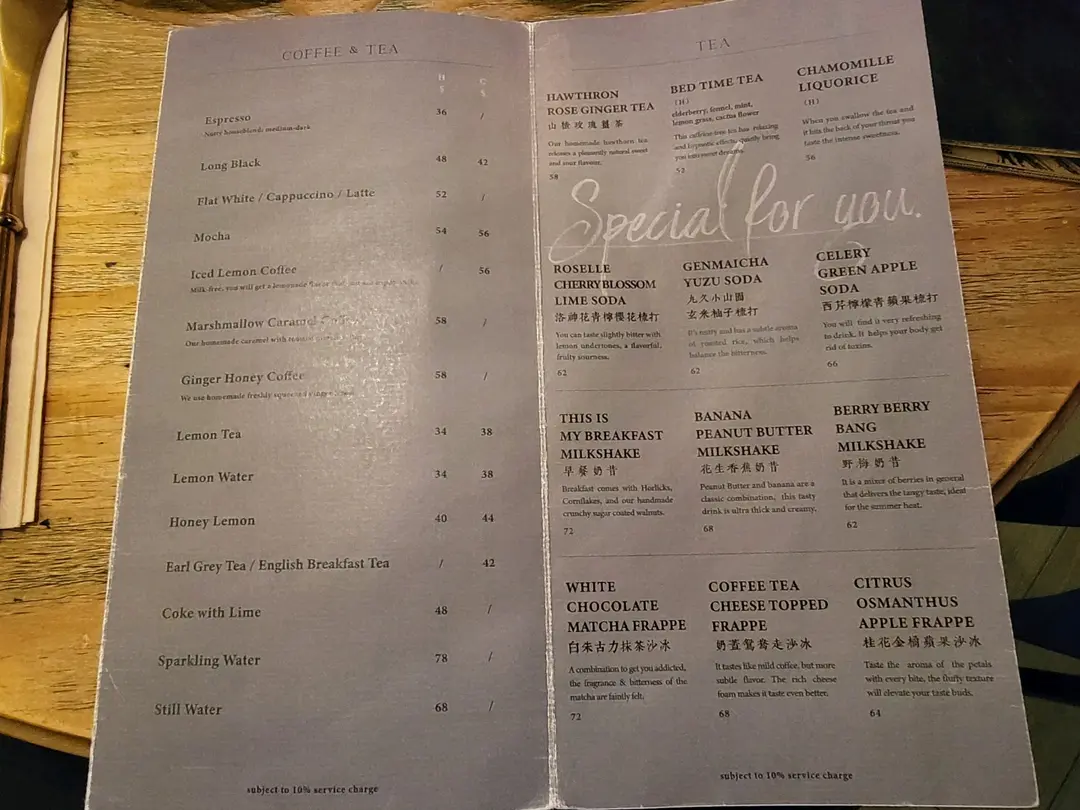 COFFEE & TEA
H C
$ $
Espresso 36 /
Nutty houseblend: medium-dark
Long Black 48 42
Flat White / Cappuccino / Latte 52 /
Mocha 54 56
Iced Lemon Coffee / 56
Milk-free, you will get a lemonade flavor
Marshmallow Caramel 58 /
Our homemade caramel with
Ginger Honey Coffee 58 /
We use homemade freshly squeezed ginger
Lemon Tea 34 38
Lemon Water 34 38
Honey Lemon 40 44
Earl Grey Tea / English Breakfast Tea / 42
Coke with Lime 48 /
Sparkling Water 78 /
Still Water 68 /
subject to 10% service charge
TEA
HAWTHRON
ROSE GINGER TEA
山楂玫瑰薑茶
Our homemade hawthorn tea
releases a pleasantly natural sweet
and sour flavour.
58
BED TIME TEA
(H)
elderberry, fennel, mint,
lemon grass, cactus flower
This caffeine-free tea has relaxing
and hypnotic effects quietly bring
you into sweet dreams
52
CHAMOMILLE
LIQUORICE
(H)
When you swallow the tea and
it hits the back of your throat you
taste the intense sweetness.
56
Special for you.
ROSELLE
CHERRY BLOSSOM
LIME SODA
洛神花青檸櫻花梳打
You can taste slightly bitter with
lemon undertones, a flavorful,
fruity sourness.
62
GENMAICHA
YUZU SODA
九久小山園
玄米柚子梳打
It's nutty and has a subtle aroma
of roasted rice, which helps
balance the bitterness.
62
CELERY
GREEN APPLE
SODA
西芹檸檬青蘋果梳打
You will find it very refreshing
to drink. It helps your body get
rid of toxins.
66
THIS IS
MY BREAKFAST
MILKSHAKE
早餐奶昔
Breakfast comes with Horlicks,
Cornflakes, and our handmade
crunchy sugar coated walnuts.
72
BANANA
PEANUT BUTTER
MILKSHAKE
花生香蕉奶昔
Peanut Butter and banana are a
classic combination, this tasty
drink is ultra thick and creamy.
68
BERRY BERRY
BANG
MILKSHAKE
野梅奶昔
It is a mixture of berries in general
that delivers the tangy taste, ideal
for the summer heat.
62
WHITE
CHOCOLATE
MATCHA FRAPPE
白朱古力抹茶沙冰
A combination to get you addicted,
the fragrance & bitterness of the
matcha are faintly felt.
72
COFFEE TEA
CHEESE TOPPED
FRAPPE
奶蓋鴛鴦走沙冰
It tastes like mild coffee, but more
subtle flavor. The rich cheese
foam makes it taste even better.
68
CITRUS
OSMANTHUS
APPLE FRAPPE
桂花金桶蘋果沙冰
Taste the aroma of the petals
with every bite, the fluffy texture
will elevate your taste buds.
64
subject to 10% service charge